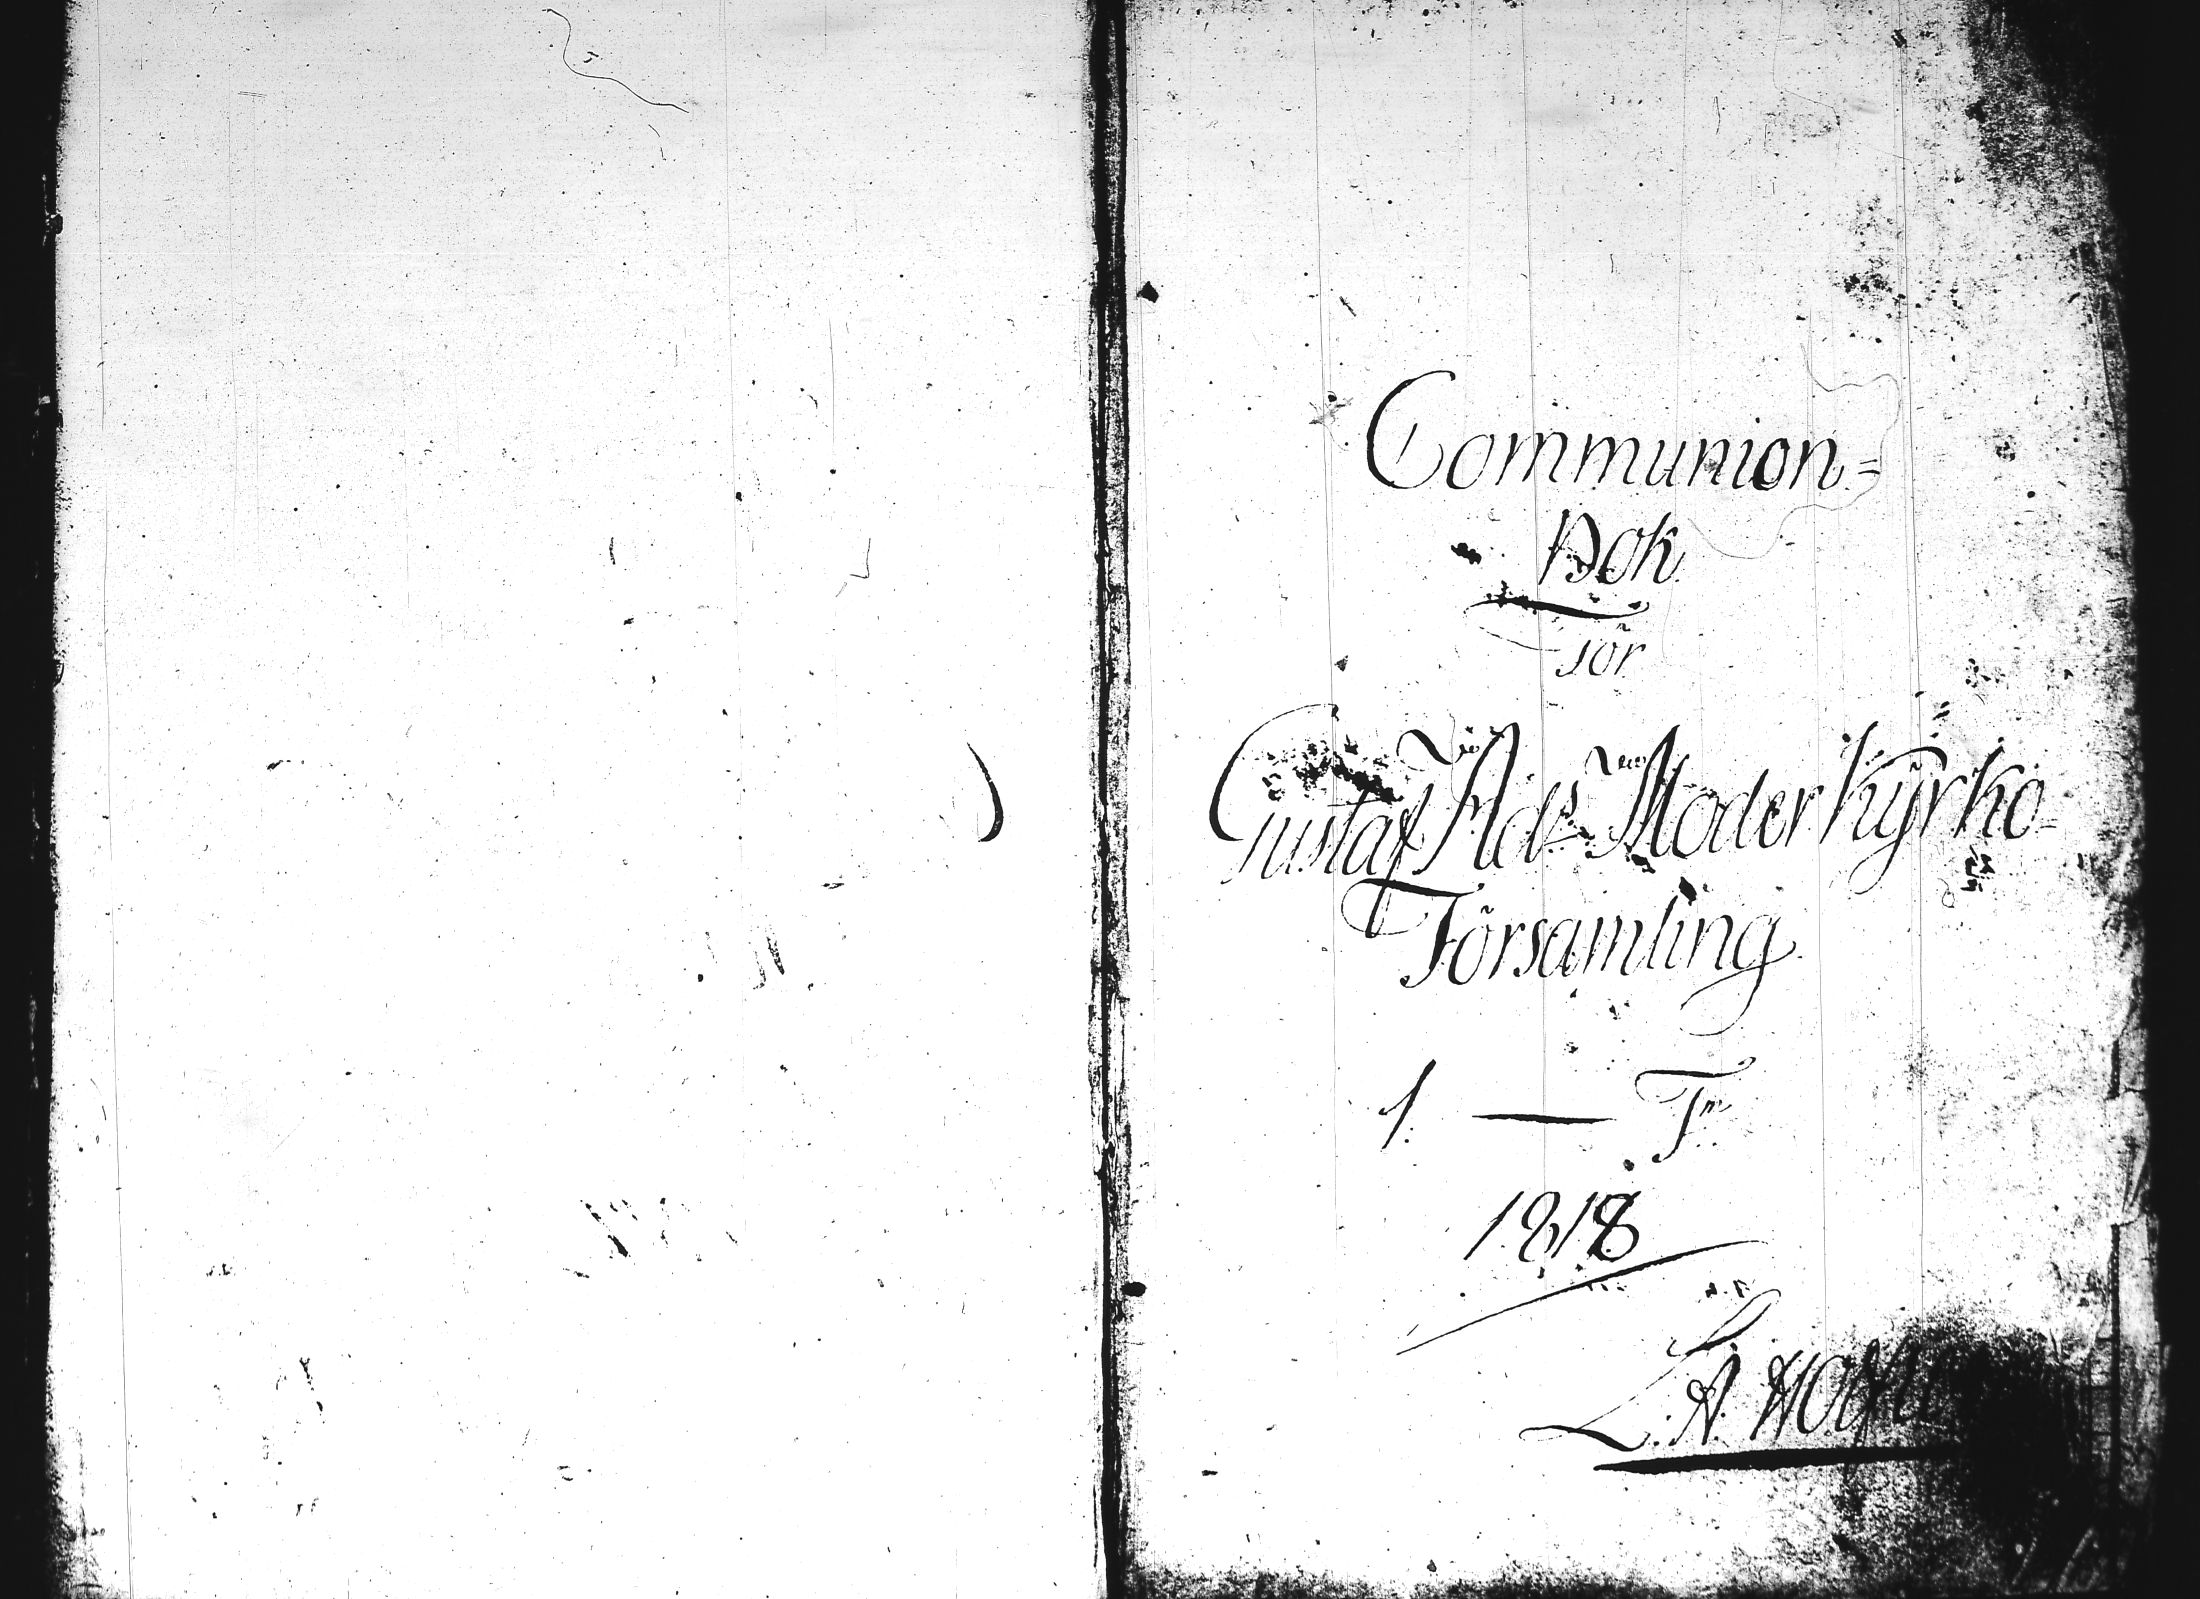 Communion=
Bok
för
Gustaf Ads Moder Kÿrko-
Församling
1. — Tm
1818
L. A.